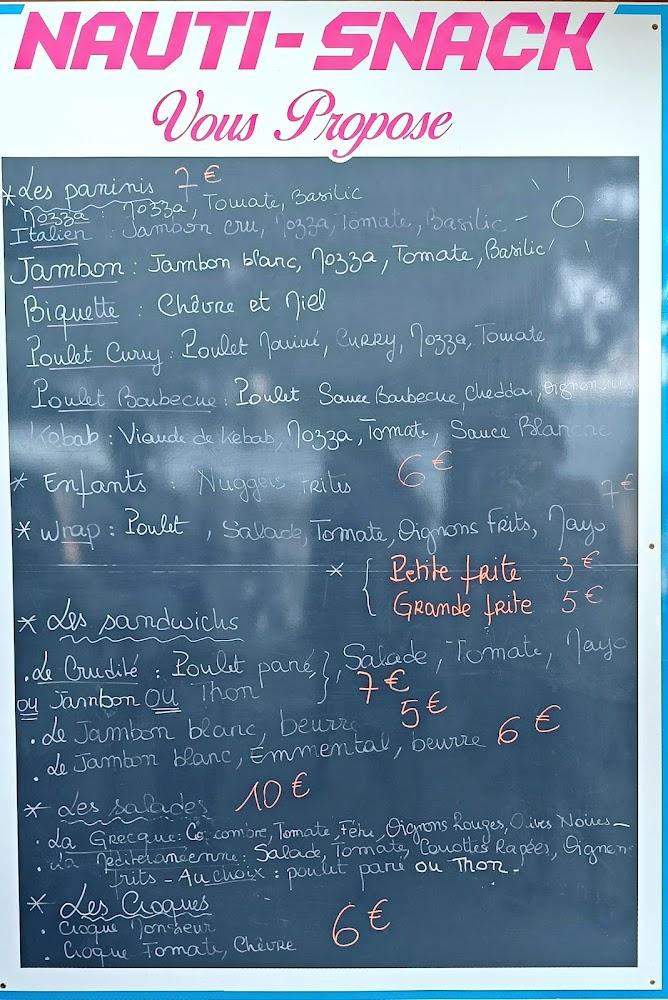 NAUTI-SNACK
Vous Propose
* Les paninis 7€
Mozza : Mozza, Tomate, Basilic
Italien : Jambon cru, Mozza, Tomate, Basilic
Jambon : Jambon blanc, Mozza, Tomate, Basilic
Biquette : Chèvre et Miel
Poulet Curry : Poulet Mariné, Curry, Mozza, Tomate
Poulet Barbecue : Poulet Sauce Barbecue, Cheddar, Oignon
Kebab : Viande de Kebab, Mozza, Tomate, Sauce Blanche
* Enfants : Nuggets Frites 6€
* Wrap : Poulet, Salade, Tomate, Oignons Frits, Mayo 7€
* { Petite frite 3€
Grande frite 5€
* Les sandwichs
. Le Crudité : Poulet pané }, Salade, Tomate, Mayo
ou Jambon OU Thon 7€
. Le Jambon blanc, beurre 5€
. Le Jambon blanc, Emmental, beurre 6€
* Les salades 10€
. La Grecque : Concombre, Tomate, Féta, Oignons Rouges, Olives Noires -
. La Méditéranéenne : Salade, Tomate, Carottes Rapées, Oignon
frits - Au choix : poulet pané ou Thon -
* Les Croques 6€
. Croque Monsieur
. Croque Tomate, Chèvre